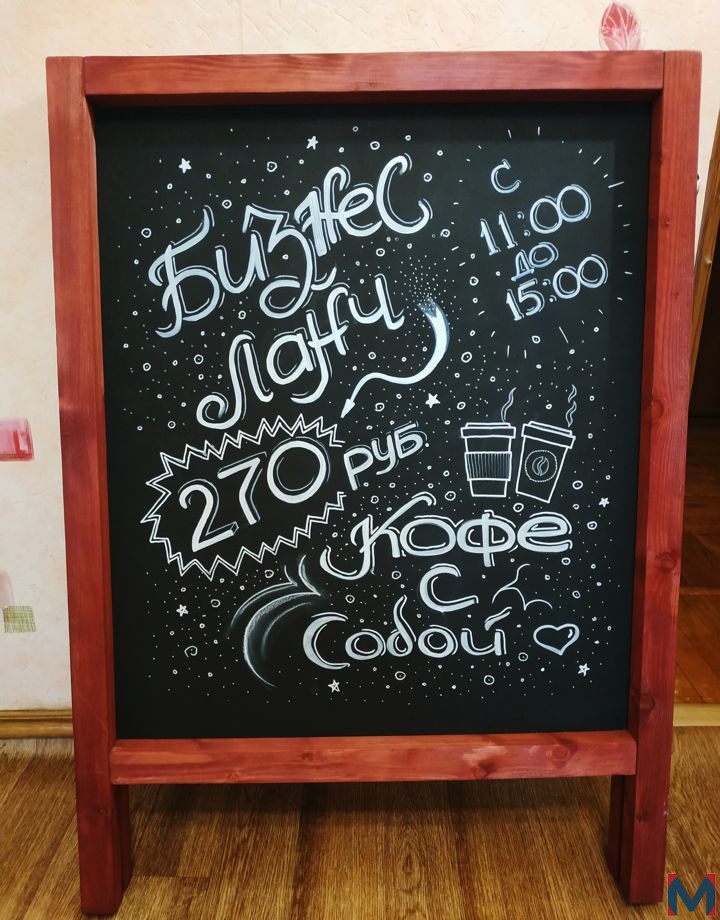 Бизнес
Ланч
с
11:00
до
15:00
270 руб
Кофе
с
Собой
M